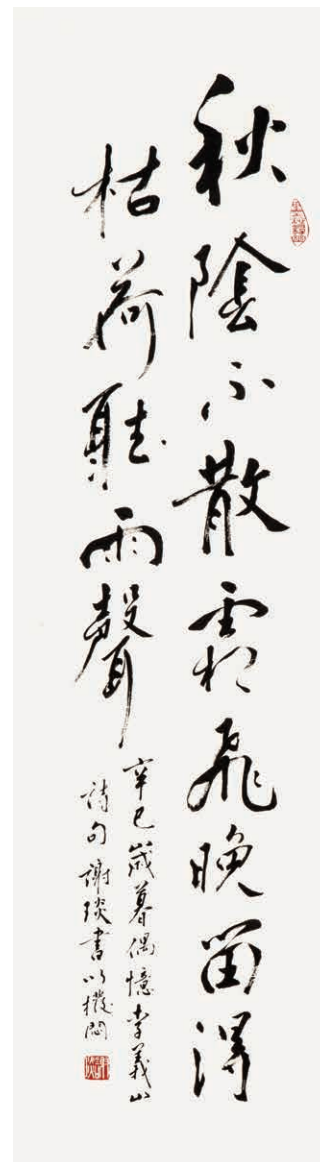 秋陰不散霜飛晚留得
枯荷聽雨聲
辛巳歲暮偶憶李義山
詩句謝琰書以撥悶